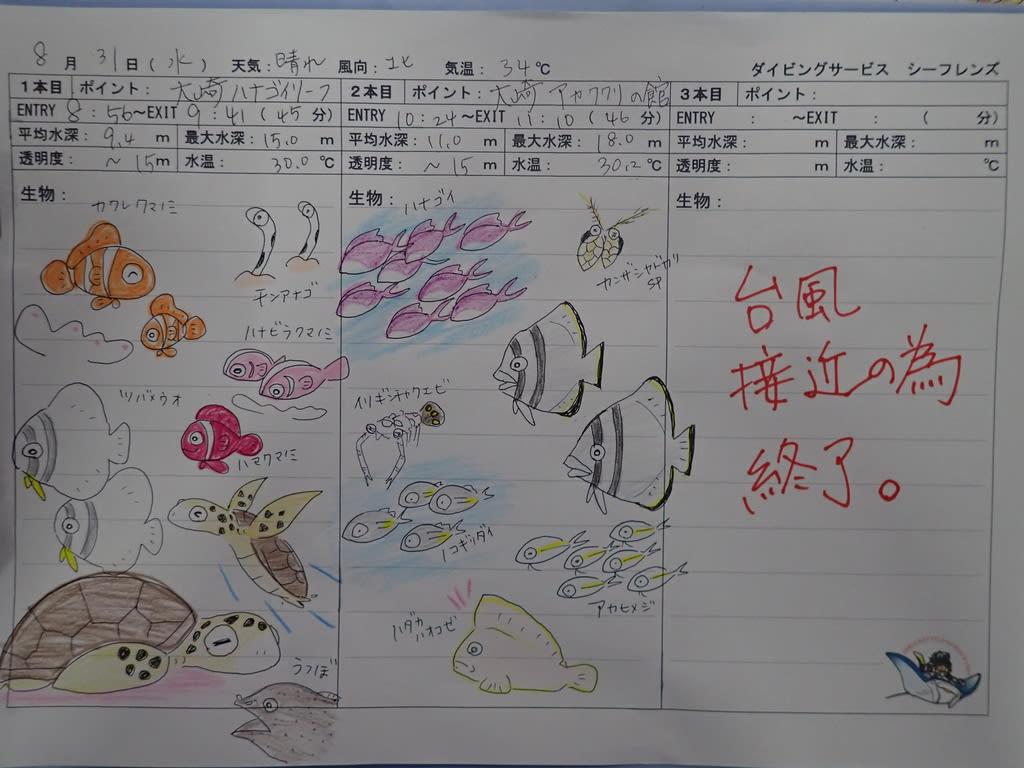 8月31日(水) 天気:晴れ 風向:北 気温:34℃ ダイビングサービス シーフレンズ
1本目 ポイント: 大崎ハナゴイリーフ
ENTRY 8:56~EXIT 9:41(45分)
平均水深:9.4m 最大水深:15.0m
透明度:~15m 水温:30.0℃
生物:
カクレクマノミ
チンアナゴ
ハナビラクマノミ
ツバメウオ
ハマクマノミ
うつぼ
2本目 ポイント: 大崎アカククリの館
ENTRY 10:24~EXIT 11:10(46分)
平均水深:11.0m 最大水深:18.0m
透明度:~15m 水温:30.2℃
生物:
ハナゴイ
カンザシヤドカリ
SP
イソギンチャクエビ
ノコギリダイ
アカヒメジ
ハダカ
ハオコゼ
3本目 ポイント:
ENTRY : ~EXIT : ( 分)
平均水深: m 最大水深: m
透明度: m 水温: ℃
生物:
台風
接近の為
終了。